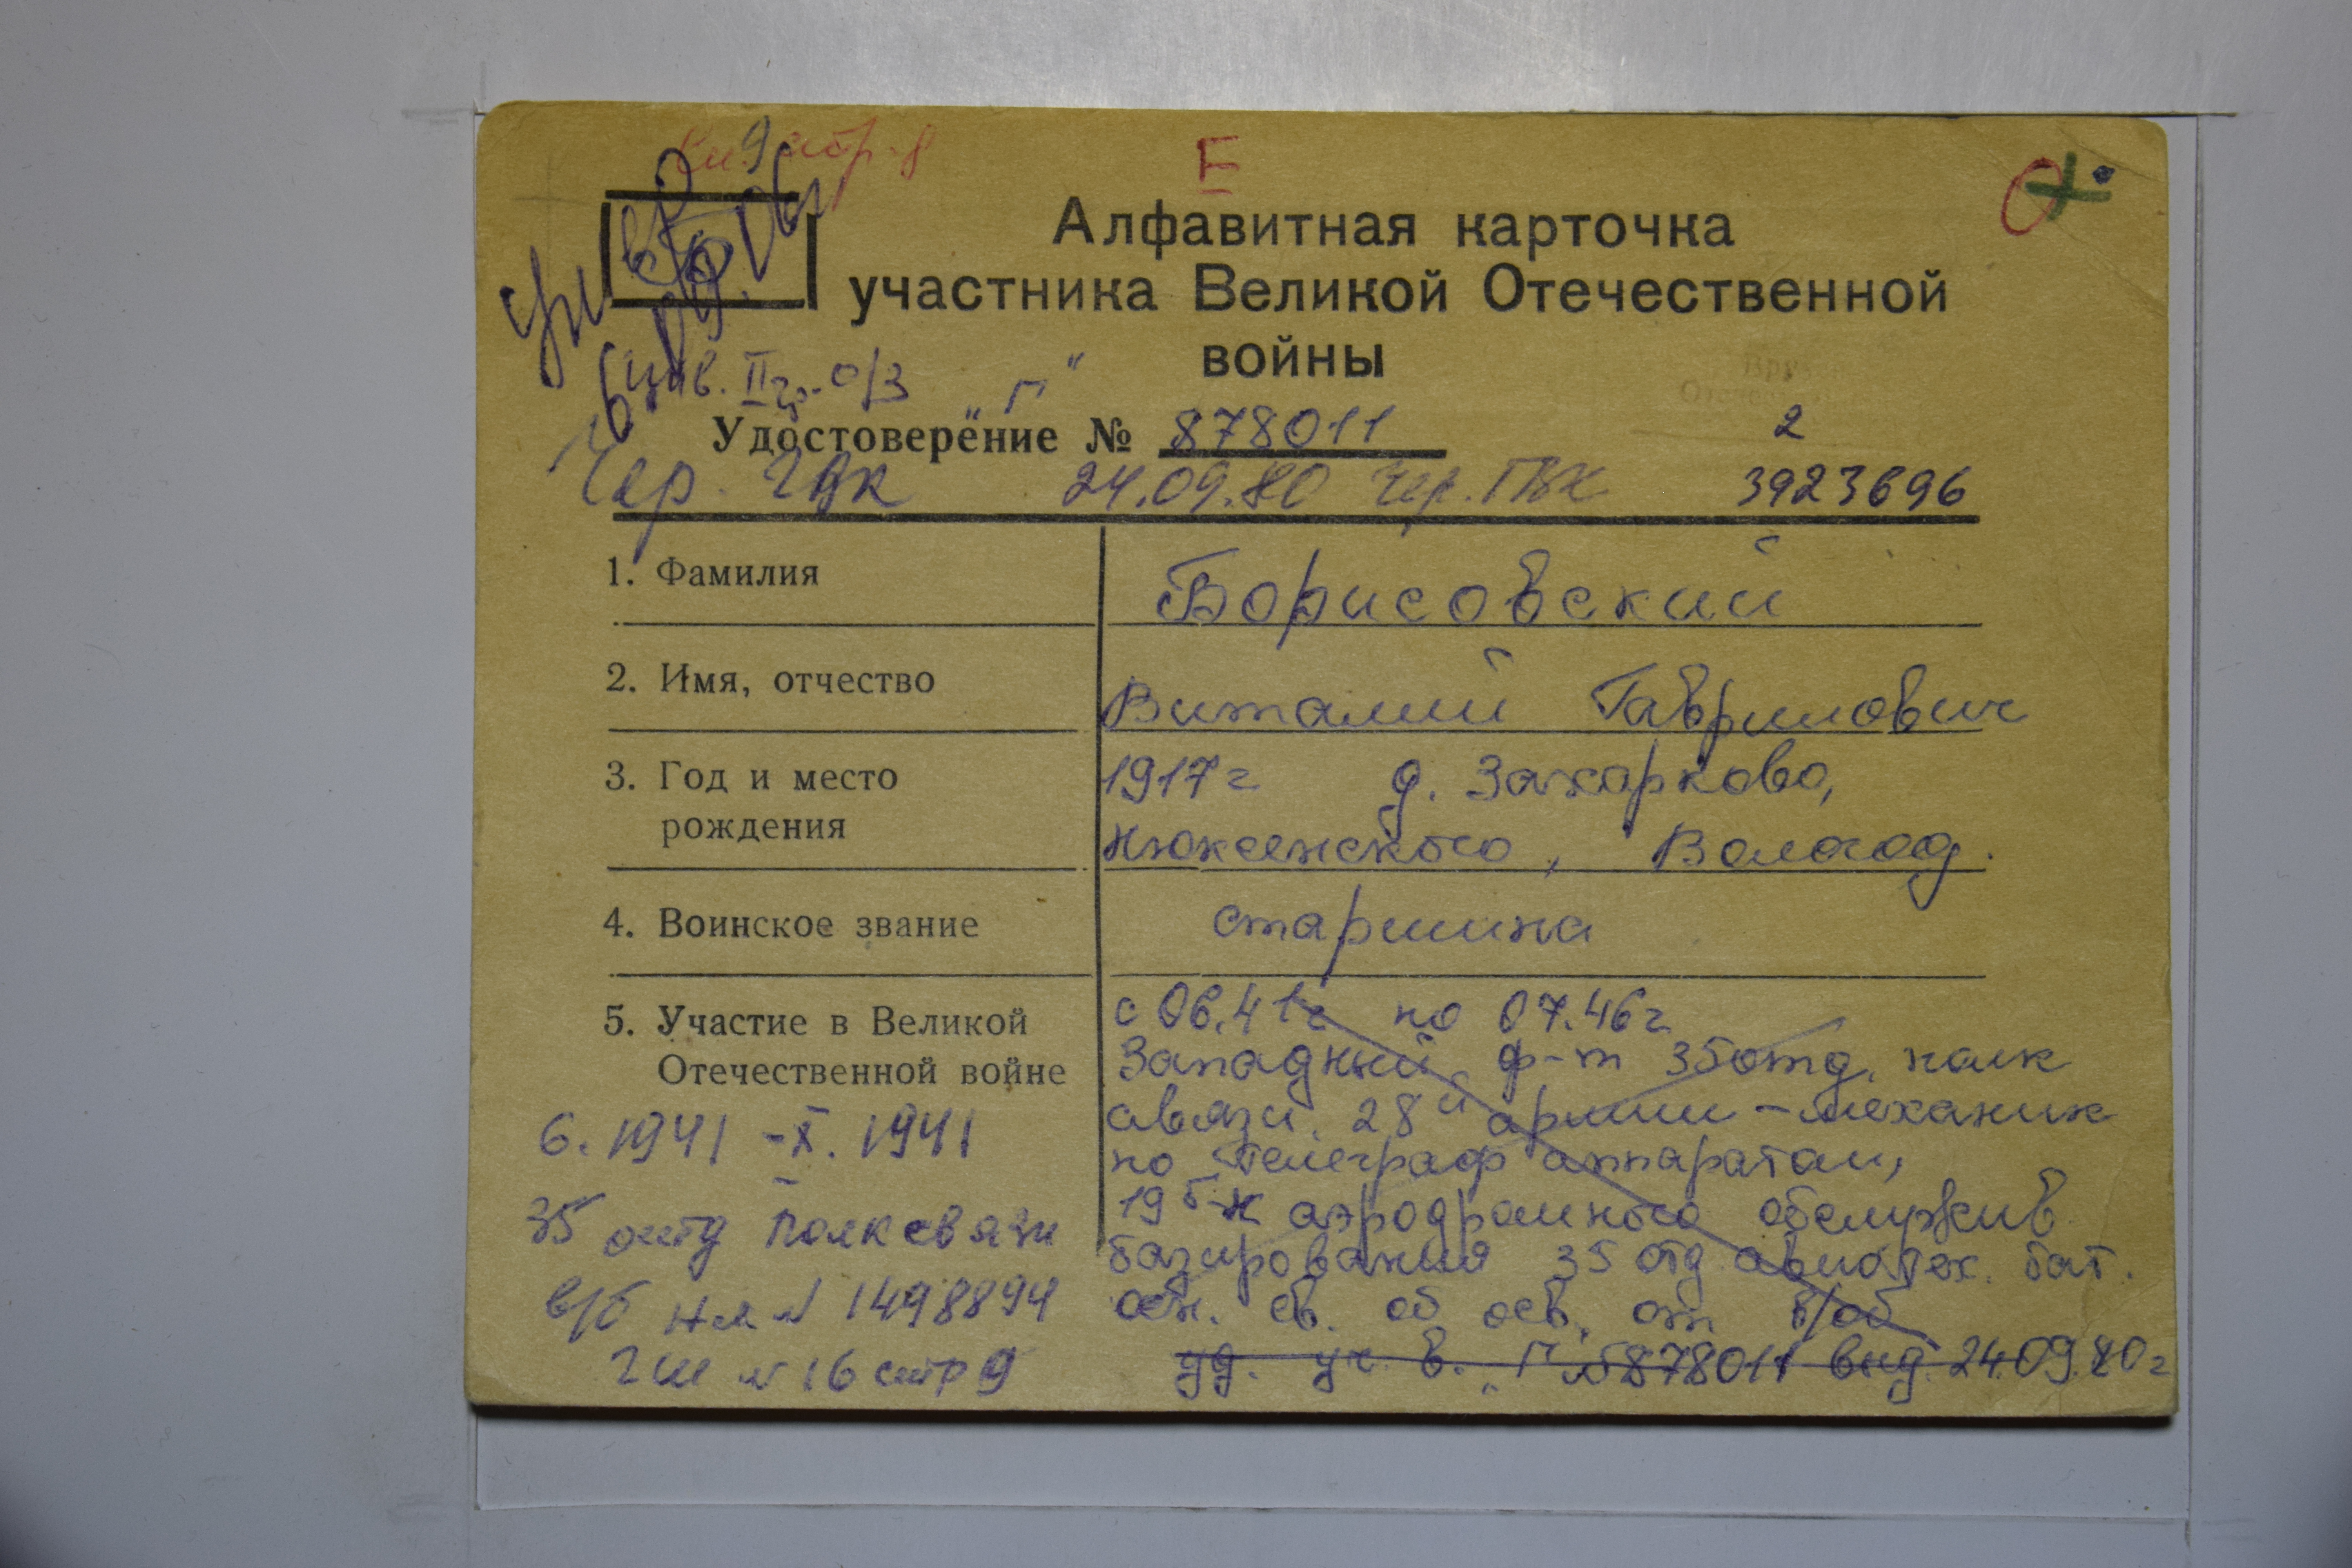 стр. 8
Е
Алфавитная карточка
участника Великой Отечественной
войны
инв. II гр. о/з "Г"
Удостоверение № 878011
2
Чер. ГВК 24.09.80 Чер. ГВК 3923696
1. Фамилия Борисовский
2. Имя, отчество Виталий Гаврилович
3. Год и место 1917г д. Захарково,
рождения Нюксенского, Вологод.
4. Воинское звание старшина
5. Участие в Великой с 06.41г по 07.46г
Отечественной войне Западный ф-т 35 отд. полк
6. 1941 - X. 1941 связи 28й армии - механик
по телеграф аппаратам,
35 отд полк связи 19 б-н аэродромного обслужив
базирования 35 отд авиатех. бат.
в/б НЛ № 1498894 осн. св. об осв. от в/об
ГШ № 16 стр 9 уд. уч. в. "Г" № 878011 выд. 24.09.80г